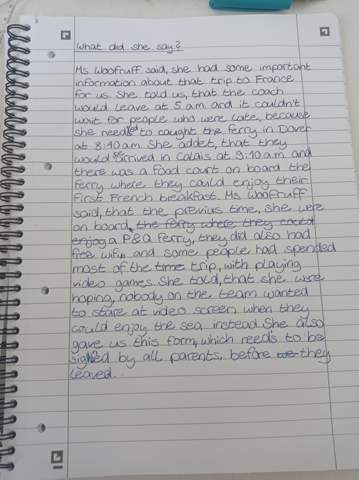 What did she say?
Ms Woofruff said, she had some important
information about that trip to France
for us. She told us, that the coach
would leave at 5 am and it couldn't
wait for people who were late, because
she needed to caught the ferry in Dover
at 8:40am. She addet, that they
would be arrived in Calais at 9:10am and
there was a food court on board the
ferry where they could enjoy their
first French breakfast. Ms Woofruff
said, that the previus time, she were
on board, the ferry where they could
enjoy a P&O ferry, they did also had
free wifi, and some people had spended
most of the time trip, with playing
video games. She told, that she were
hoping, nobody on the team wanted
to stare at video screen when they
could enjoy the sea instead. She also
gave us this form, which needs to be
signed by all parents, before they
leaved.